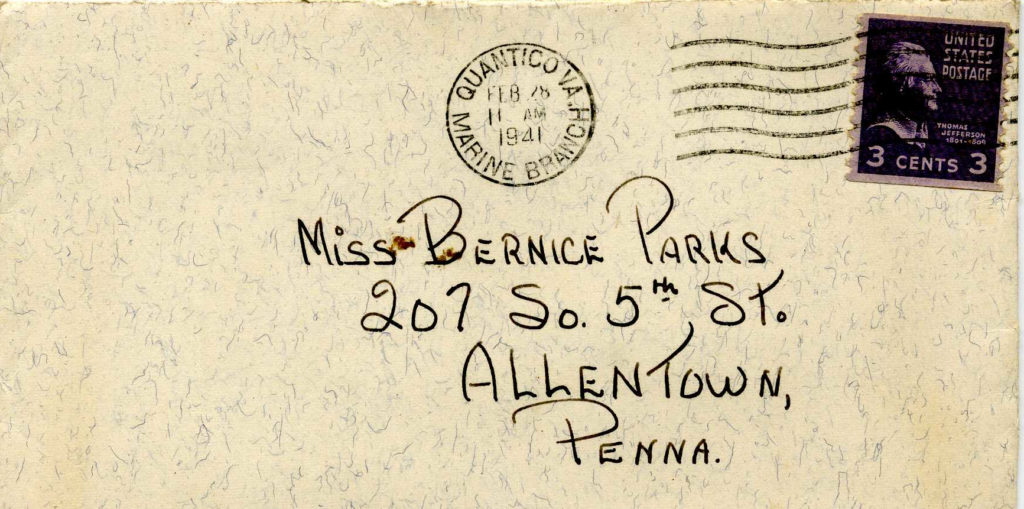 QUANTICO, VA.
FEB 28
11 AM
1941
MARINE BRANCH
UNITED
STATES
POSTAGE
THOMAS
JEFFERSON
1801-1809
3 CENTS 3
Miss BERNICE PARKS
207 So. 5th St.
ALLENTOWN,
PENNA.